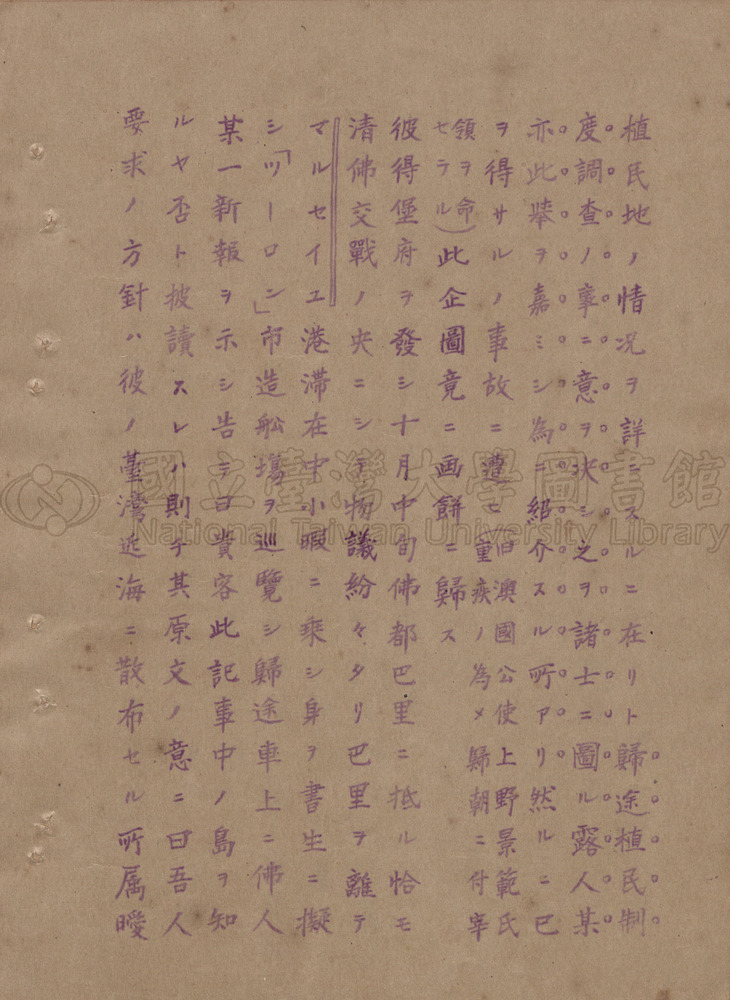 植民地ノ情況ヲ詳ニスルニ在リト歸途植民制
度調查ノ事ニ意ヲ決シ之ヲ諸士ニ圖ル露人某
亦此擧ヲ嘉ミシ為ニ紹介スル所アリ然ルニ已
ヲ得サルノ事故ニ遭ヒ
旧澳國公使上野景範氏
重疾ノ為メ歸朝ニ付宰
領ヲ命
セラル)
此企圖竟ニ画餅ニ歸ス
彼得堡府ヲ發シ十月中旬佛都巴里ニ抵ル恰モ
清佛交戰ノ央ニシテ物議紛々タリ巴里ヲ離テ
マルセイユ港滞在中小暇ニ乗シ身ヲ書生ニ擬
シ「ツーロン」市造舩塲ヲ巡覽シ歸途車上ニ佛人
某一新報ヲ示シ告テ曰貴客此記事中ノ島ヲ知
ルヤ否ト披讀スレハ則チ其原文ノ意ニ曰吾人
要求ノ方針ハ彼ノ臺灣近海ニ散布セル所属曖
國立臺灣大學圖書館
National Taiwan University Library